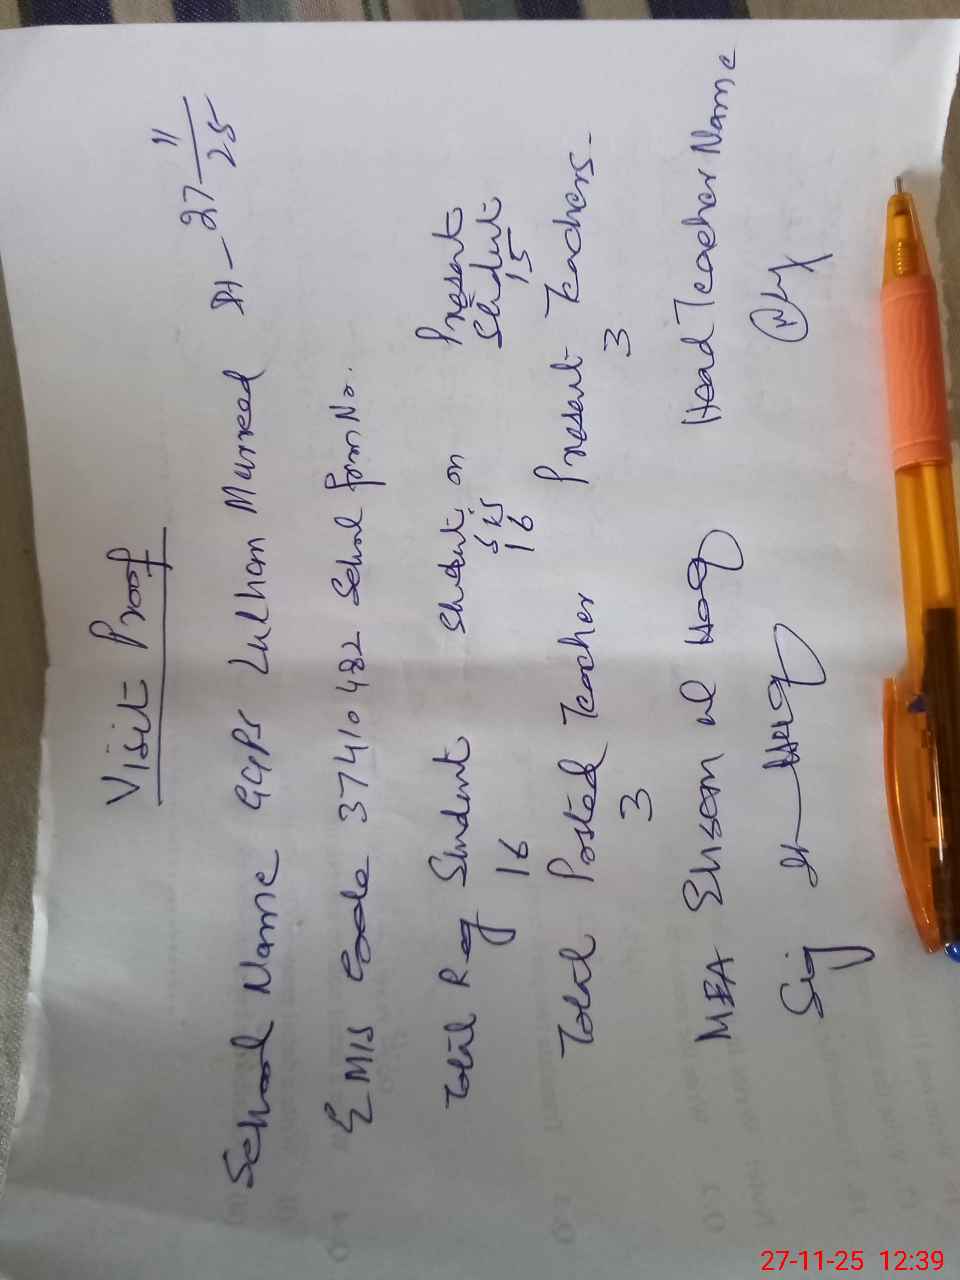 Visit Proof
School Name GGPS Lulham Mureed Dt - 27 11/25
EMIS Code 37410482 School form No.
Total Reg Student Student on Present
16 SIS Student
16 15
Total Posted Teacher Present Teachers.
3 3
MEA Ehsan ul Haq Head Teacher Name
Sig
27-11-25 12:39